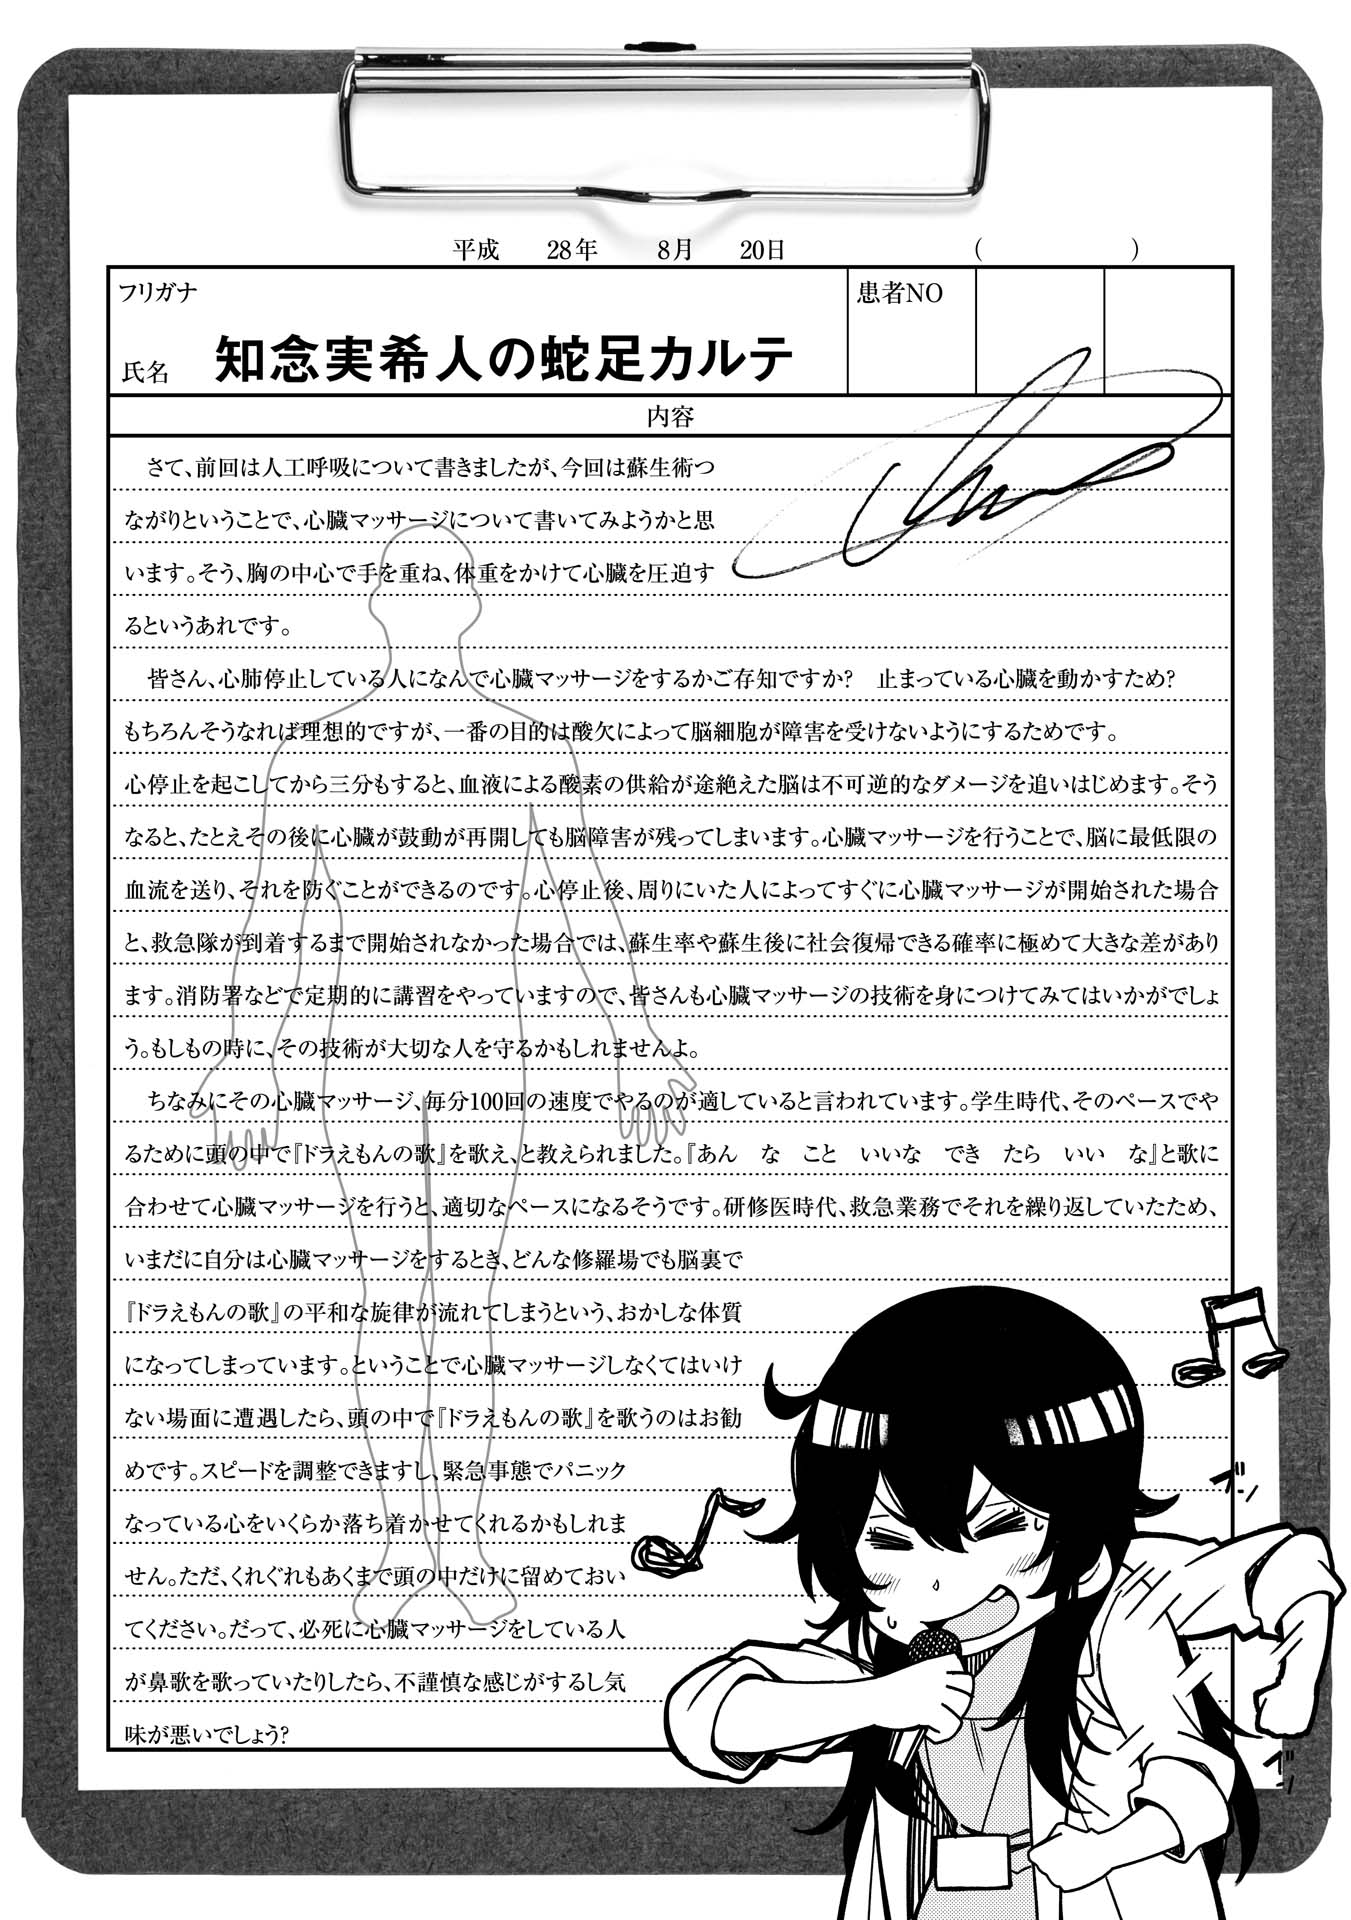 平成　28年　8月　20日　(　　)
フリガナ
患者NO
氏名　知念実希人の蛇足カルテ
内容
さて、前回は人工呼吸について書きましたが、今回は蘇生術つ
ながりということで、心臓マッサージについて書いてみようかと思
います。そう、胸の中心で手を重ね、体重をかけて心臓を圧迫す
るというあれです。
皆さん、心肺停止している人になんで心臓マッサージをするかご存知ですか?　止まっている心臓を動かすため?
もちろんそうなれば理想的ですが、一番の目的は酸欠によって脳細胞が障害を受けないようにするためです。
心停止を起こしてから三分もすると、血液による酸素の供給が途絶えた脳は不可逆的なダメージを追いはじめます。そう
なると、たとえその後に心臓が鼓動が再開しても脳障害が残ってしまいます。心臓マッサージを行うことで、脳に最低限の
血流を送り、それを防ぐことができるのです。心停止後、周りにいた人によってすぐに心臓マッサージが開始された場合
と、救急隊が到着するまで開始されなかった場合では、蘇生率や蘇生後に社会復帰できる確率に極めて大きな差があり
ます。消防署などで定期的に講習をやっていますので、皆さんも心臓マッサージの技術を身につけてみてはいかがでしょ
う。もしもの時に、その技術が大切な人を守るかもしれませんよ。
ちなみにその心臓マッサージ、毎分100回の速度でやるのが適していると言われています。学生時代、そのペースでや
るために頭の中で『ドラえもんの歌』を歌え、と教えられました。『あん　な　こと　いいな　でき　たら　いい　な』と歌に
合わせて心臓マッサージを行うと、適切なペースになるそうです。研修医時代、救急業務でそれを繰り返していたため、
いまだに自分は心臓マッサージをするとき、どんな修羅場でも脳裏で
『ドラえもんの歌』の平和な旋律が流れてしまうという、おかしな体質
になってしまっています。ということで心臓マッサージしなくてはいけ
ない場面に遭遇したら、頭の中で『ドラえもんの歌』を歌うのはお勧
めです。スピードを調整できますし、緊急事態でパニック
なっている心をいくらか落ち着かせてくれるかもしれま
せん。ただ、くれぐれもあくまで頭の中だけに留めておい
てください。だって、必死に心臓マッサージをしている人
が鼻歌を歌っていたりしたら、不謹慎な感じがするし気
味が悪いでしょう?
ブン
ブン